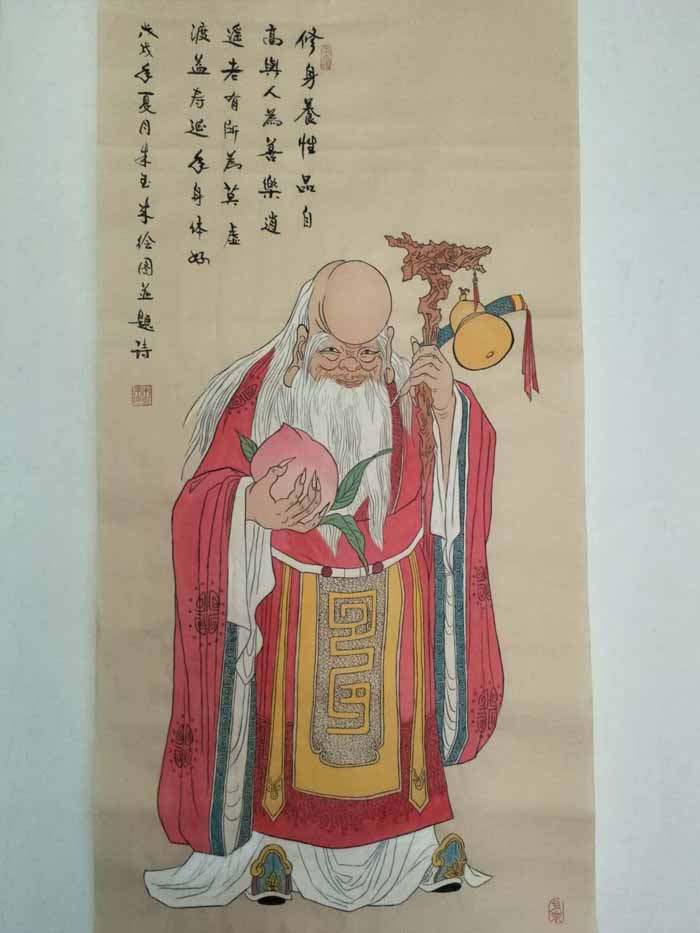 修身養性品自
高與人為善樂逍
遥老有所為莫虚
渡益寿延年身体好
戊戌年夏月朱玉 绘图並题诗